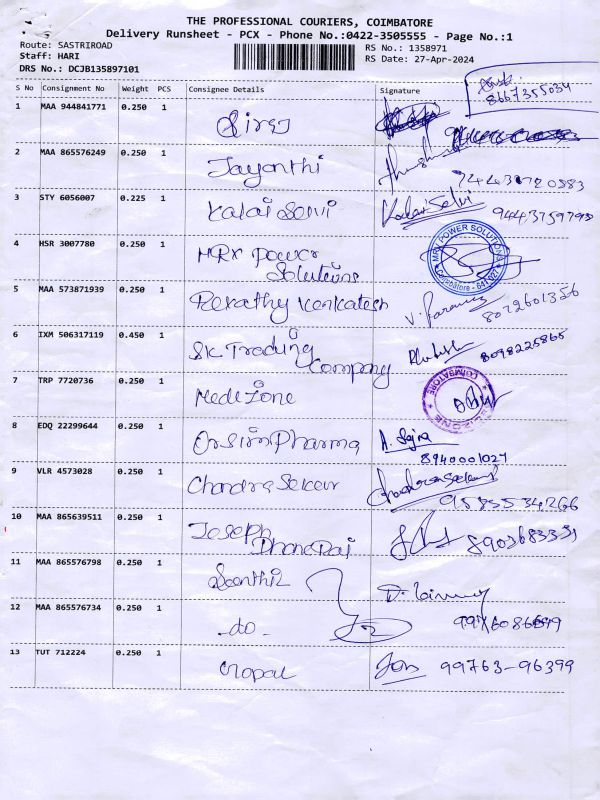 THE PROFESSIONAL COURIERS, COIMBATORE
Delivery Runsheet - PCX - Phone No.:0422-3505555 - Page No.:1
Route: SASTRIROAD
RS No.: 1358971
Staff: HARI
RS Date: 27-Apr-2024
DRS No.: DCJB135897101
S No Consignment No Weight PCS Consignee Details Signature
8667355034
1 MAA 944841771 0.250 1 Siraj
2 MAA 865576249 0.250 1 Jayanthi
3 STY 6056007 0.225 1 Kalai Selvi Kalai Selvi 9443759793
4 HSR 3007780 0.250 1 MRV Power
Solutions
MRV POWER SOLUTIONS
Coimbatore - 641 027
5 MAA 573871939 0.250 1 Parvathy Venkatesh 8072601356
6 IXM 506317119 0.450 1 SK Trading 8098225865
Company
7 TRP 7720736 0.250 1 Medizone
COIMBATORE
8 EDQ 22299644 0.250 1 Orsim Pharma A. Sajna
8940001027
9 VLR 4573028 0.250 1 Chandra Sekar
9585534266
10 MAA 865639511 0.250 1 Joseph 8903683331
Dhana Raj
11 MAA 865576798 0.250 1 Senthil
12 MAA 865576734 0.250 1 -do-
13 TUT 712224 0.250 1 Gopal 99763-96399